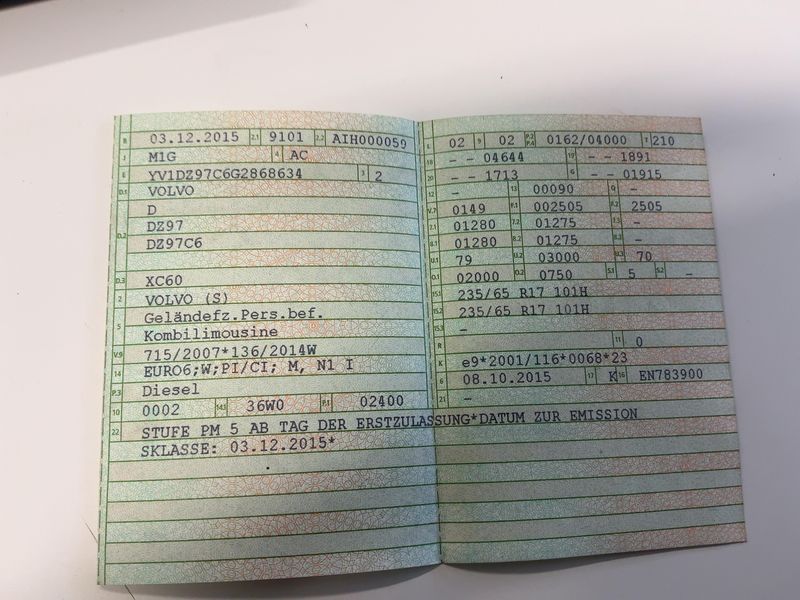 B 03.12.2015 2.1 9101 2.2 AIH000059
J M1G 4 AC
E YV1DZ97C6G2868634 3 2
D.1 VOLVO
D
D.2 DZ97
DZ97C6
D.3 XC60
2 VOLVO (S)
5 Geländefz.Pers.bef.
Kombilimousine
V.9 715/2007*136/2014W
14 EURO6;W;PI/CI; M, N1 I
P.3 Diesel
10 0002 14.1 36W0 P.1 02400
22 STUFE PM 5 AB TAG DER ERSTZULASSUNG*DATUM ZUR EMISSION
SKLASSE: 03.12.2015*
L 02 9 02 P.2 P.4 0162/04000 T 210
18 - - 04644 19 - - 1891
20 - - 1713 G - - 01915
12 - 13 00090 Q -
V.7 0149 F.1 002505 F.2 2505
7.1 01280 7.2 01275 7.3 -
8.1 01280 8.2 01275 8.3 -
U.1 79 U.2 03000 U.3 70
O.1 02000 O.2 0750 S.1 5 S.2 -
15.1 235/65 R17 101H
15.2 235/65 R17 101H
15.3 -
R 11 0
K e9*2001/116*0068*23
6 08.10.2015 17 K 16 EN783900
21 -